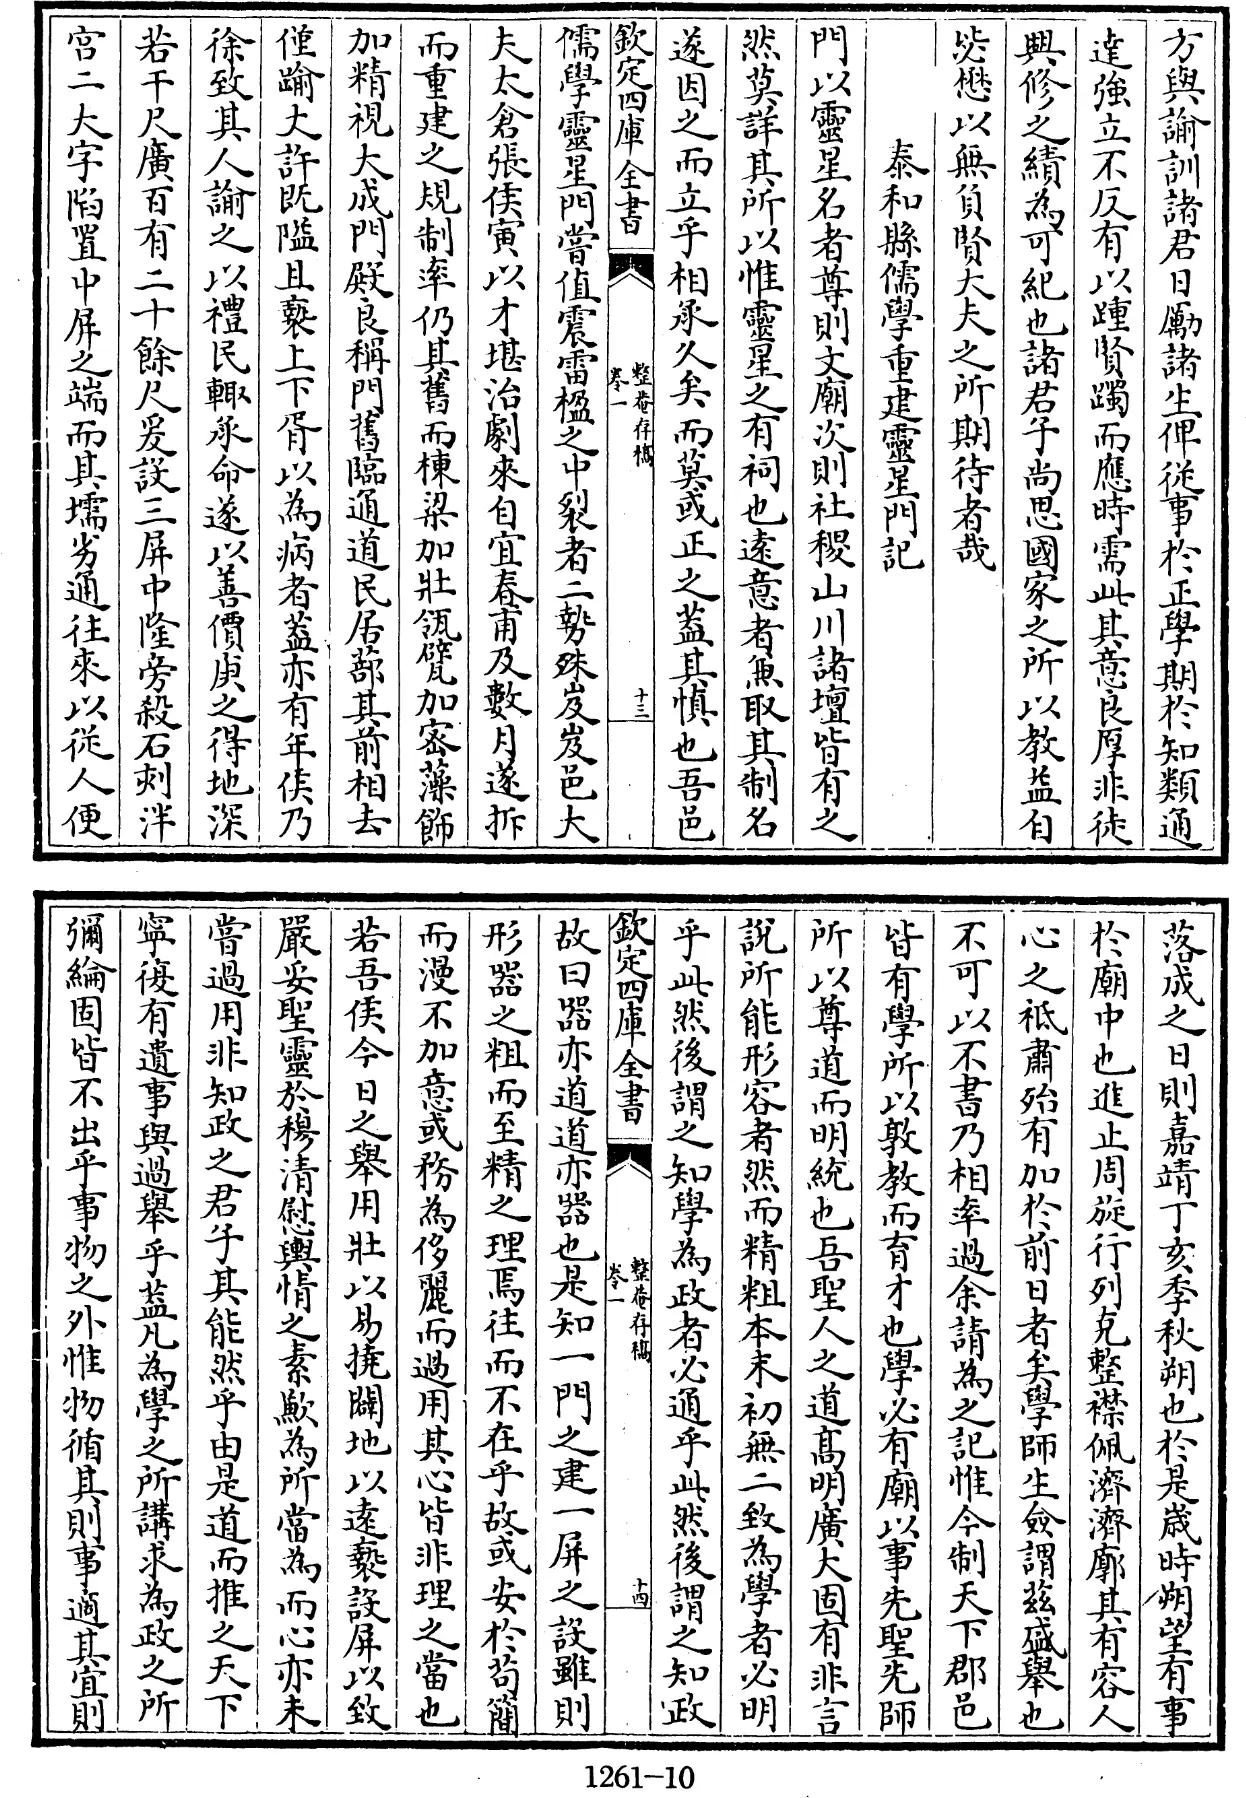 方與諭訓諸君日勵諸生俾從事於正學期於知類通
達強立不反有以踵賢躅而應時需此其意良厚非徒
興修之績為可紀也諸君子尚思國家之所以教益自
毖懋以無負賢大夫之所期待者哉
泰和縣儒學重建靈星門記
門以靈星名者尊則文廟次則社稷山川諸壇皆有之
然莫詳其所以惟靈星之有祠也遠意者無取其制名
遂因之而立乎相承久矣而莫或正之蓋其慎也吾邑
欽定四庫全書
整菴存稿
卷一
十三
儒學靈星門嘗值震雷楹之中裂者二勢殊岌岌邑大
夫太倉張侯寅以才堪治劇來自宜春甫及數月遂拆
而重建之規制率仍其舊而棟梁加壯瓴甓加密藻飾
加精視大成門殿良稱門舊臨通道民居蔀其前相去
僅踰丈許既隘且褻上下胥以為病者蓋亦有年侯乃
徐致其人諭之以禮民輒承命遂以善價庚之得地深
若干尺廣百有二十餘尺爰設三屏中隆旁殺石刻泮
宫二大字陷置中屏之端而其壖旁通往來以從人便
落成之日則嘉靖丁亥季秋朔也於是歲時朔望有事
於廟中也進止周旋行列克整襟佩濟濟廓其有容人
心之祗肅殆有加於前日者矣學師生僉謂茲盛舉也
不可以不書乃相率過余請為之記惟今制天下郡邑
皆有學所以敦教而育才也學必有廟以事先聖先師
所以尊道而明統也吾聖人之道髙明廣大固有非言
説所能形容者然而精粗本末初無二致為學者必明
乎此然後謂之知學為政者必通乎此然後謂之知政
欽定四庫全書
整菴存稿
卷一
十四
故曰器亦道道亦器也是知一門之建一屏之設雖則
形器之粗而至精之理焉往而不在乎故或安於茍簡
而漫不加意或務為侈麗而過用其心皆非理之當也
若吾侯今日之舉用壯以易撓闢地以遠褻設屏以致
嚴妥聖靈於穆清慰輿情之素歉為所當為而心亦未
嘗過用非知政之君子其能然乎由是道而推之天下
寧復有遺事與過舉乎蓋凡為學之所講求為政之所
彌綸固皆不出乎事物之外惟物循其則事適其宜則
1261-10